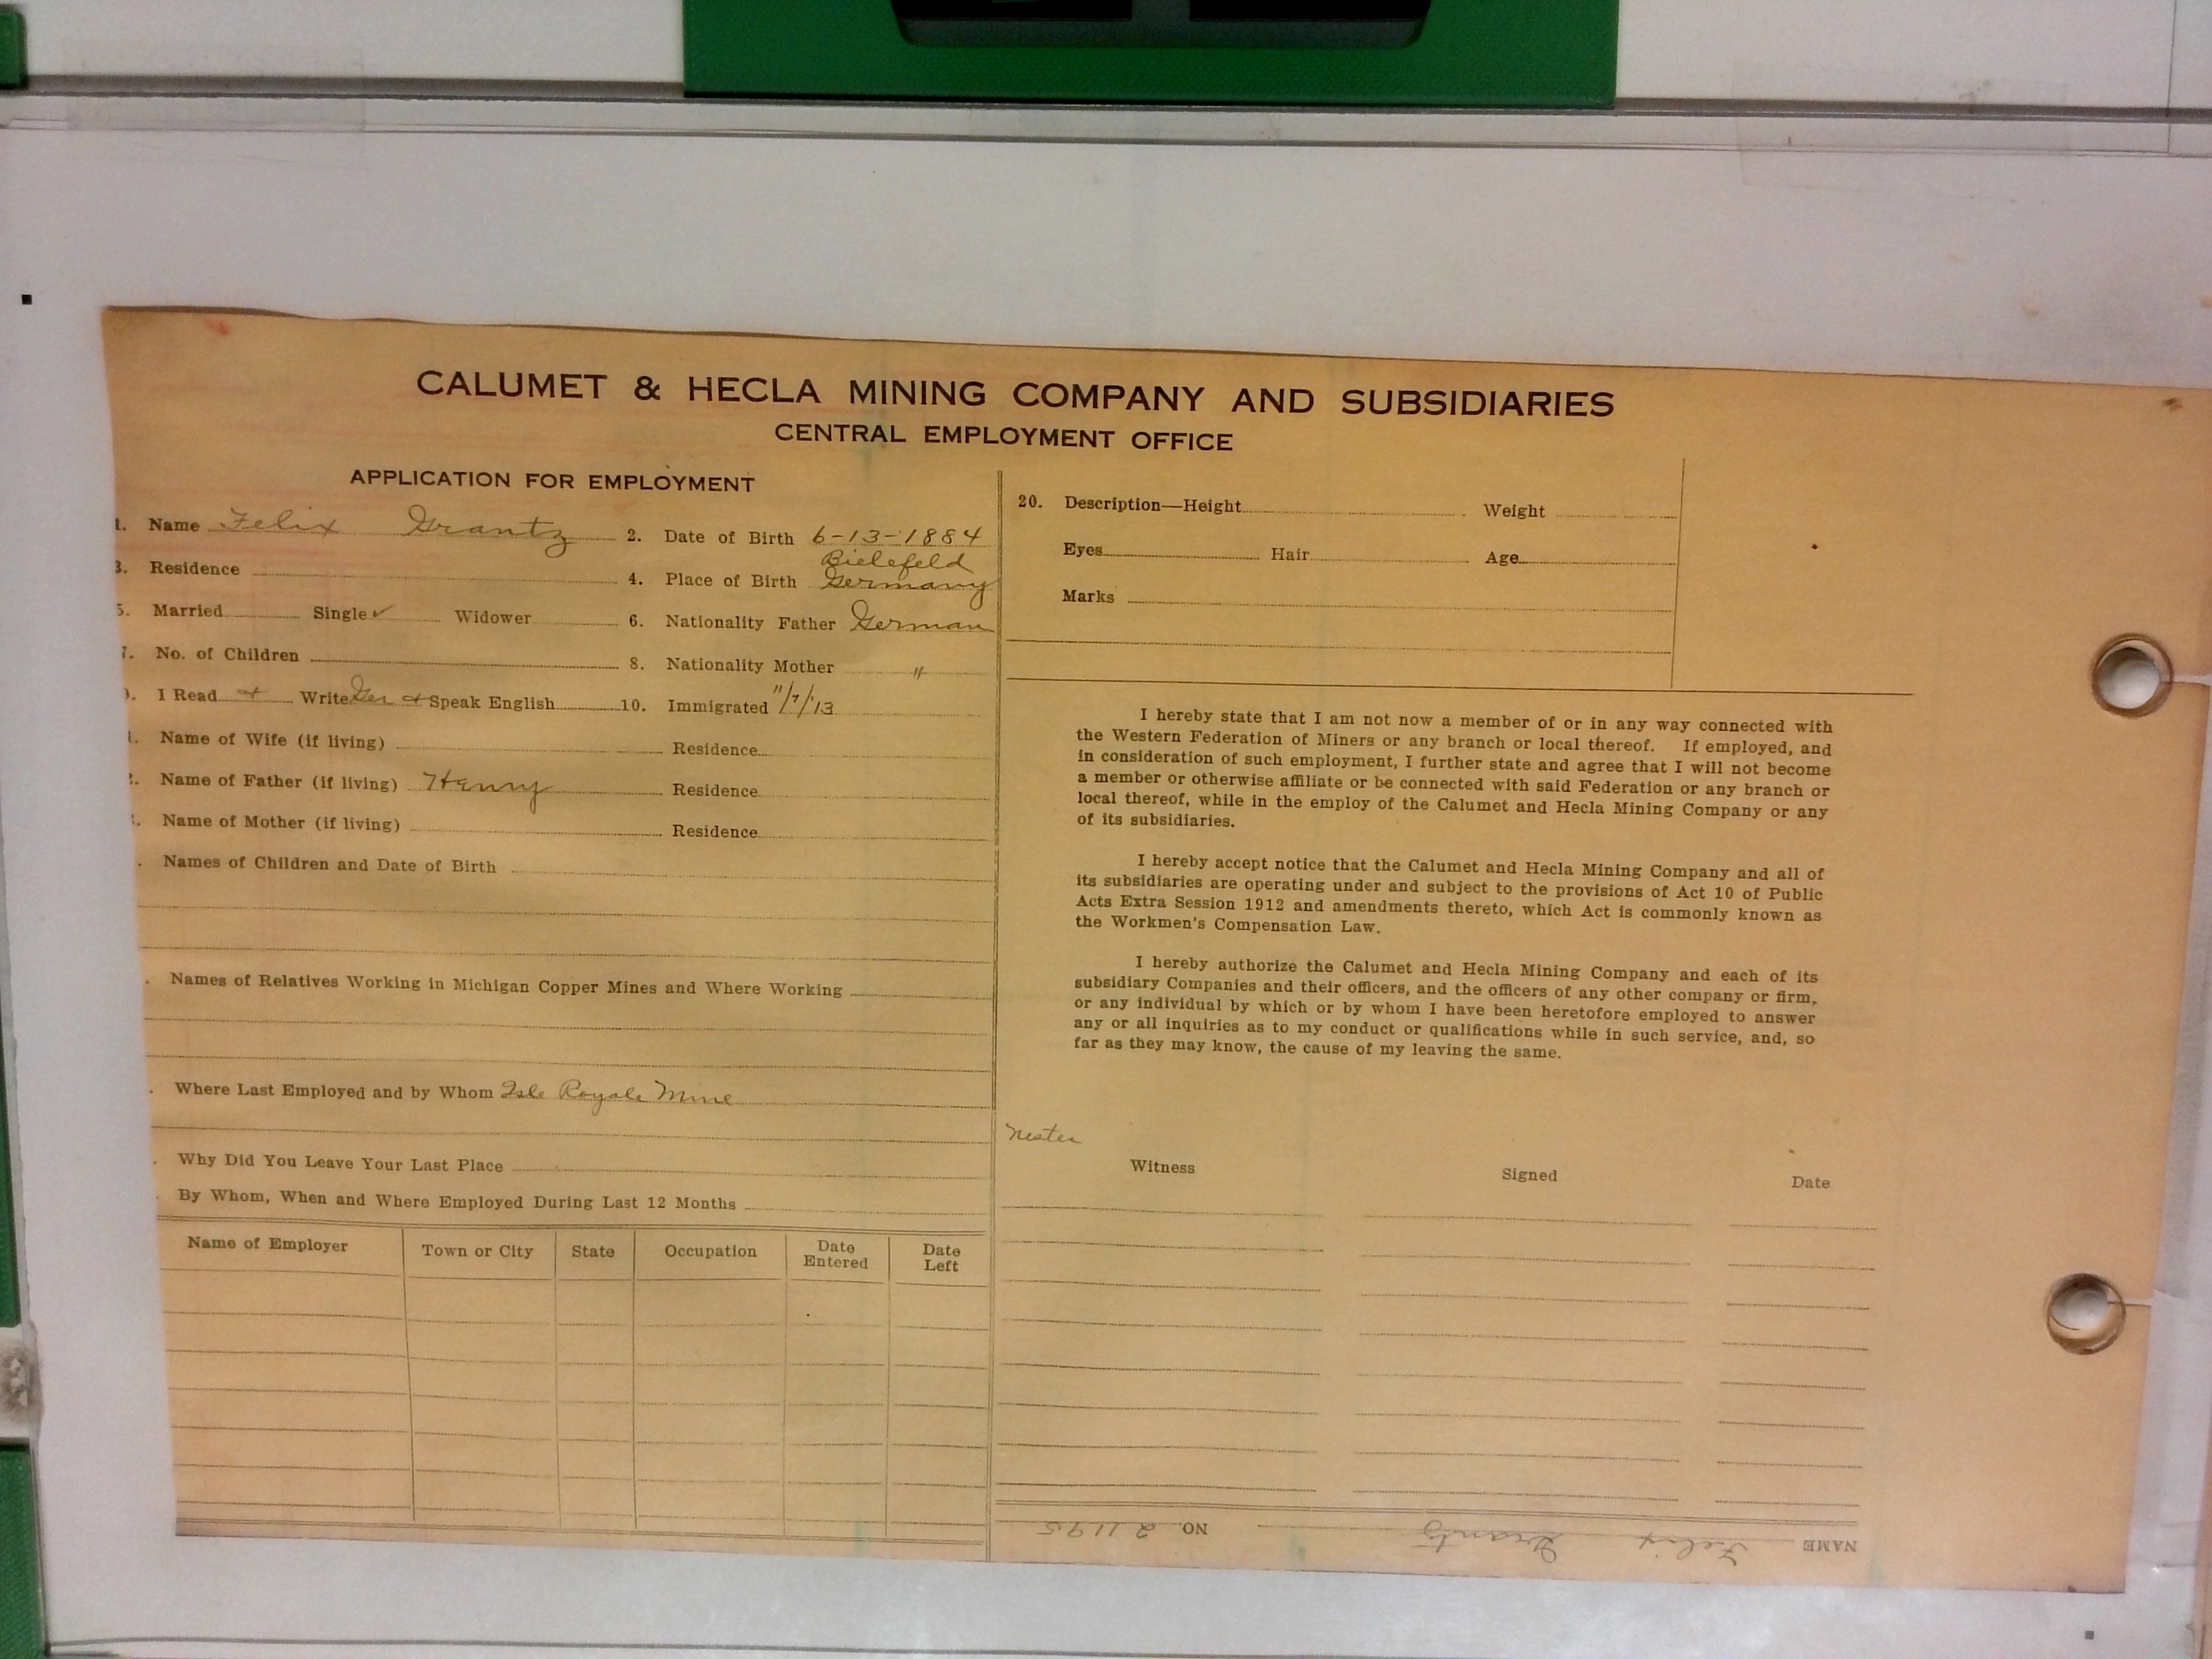 CALUMET & HECLA MINING COMPANY AND SUBSIDIARIES
CENTRAL EMPLOYMENT OFFICE
APPLICATION FOR EMPLOYMENT
1. Name Felix Grantz 2. Date of Birth 6-13-1884
Bielefeld
3. Residence 4. Place of Birth Germany
5. Married Single ✓ Widower 6. Nationality Father German
7. No. of Children 8. Nationality Mother "
9. I Read + Write Ger + Speak English 10. Immigrated 11/7/13
1. Name of Wife (if living) Residence
2. Name of Father (if living) Henry Residence
. Name of Mother (if living) Residence
. Names of Children and Date of Birth
. Names of Relatives Working in Michigan Copper Mines and Where Working
. Where Last Employed and by Whom Isle Royale Mine
. Why Did You Leave Your Last Place
. By Whom, When and Where Employed During Last 12 Months
Name of Employer Town or City State Occupation Date Entered Date Left
20. Description—Height Weight
Eyes Hair Age
Marks
I hereby state that I am not now a member of or in any way connected with
the Western Federation of Miners or any branch or local thereof. If employed, and
in consideration of such employment, I further state and agree that I will not become
a member or otherwise affiliate or be connected with said Federation or any branch or
local thereof, while in the employ of the Calumet and Hecla Mining Company or any
of its subsidiaries.
I hereby accept notice that the Calumet and Hecla Mining Company and all of
its subsidiaries are operating under and subject to the provisions of Act 10 of Public
Acts Extra Session 1912 and amendments thereto, which Act is commonly known as
the Workmen's Compensation Law.
I hereby authorize the Calumet and Hecla Mining Company and each of its
subsidiary Companies and their officers, and the officers of any other company or firm,
or any individual by which or by whom I have been heretofore employed to answer
any or all inquiries as to my conduct or qualifications while in such service, and, so
far as they may know, the cause of my leaving the same.
Nester
Witness Signed Date
NAME Felix Grantz NO. 21195